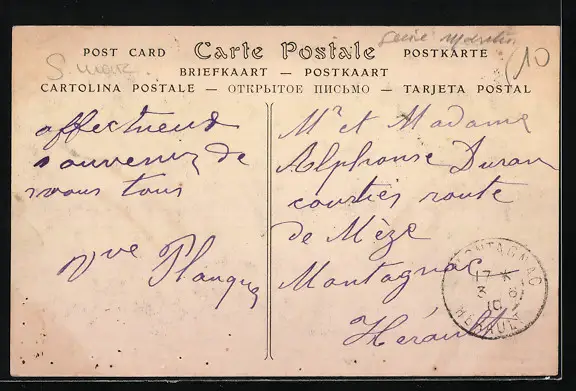 POST CARD Carte Postale POSTKARTE
BRIEFKAART — POSTKAART
CARTOLINA POSTALE — ОТКРЫТОЕ ПИСЬМО — TARJETA POSTAL
(10
affectueux
souvenir de
nous tous
Vve Planque
Mr et Madame
Alphonse Duran
courtier route
de Mèze
Montagnac
Hérault
MONTAGNAC
17 *
3 - 8
10
HERAULT